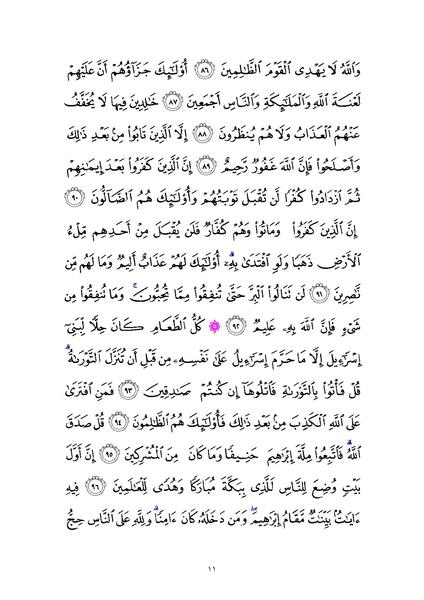 وَٱللَّهُ لَا يَهۡدِي ٱلۡقَوۡمَ ٱلظَّٰلِمِينَ ٨٦ أُوْلَٰٓئِكَ جَزَآؤُهُمۡ أَنَّ عَلَيۡهِمۡ
لَعۡنَةَ ٱللَّهِ وَٱلۡمَلَٰٓئِكَةِ وَٱلنَّاسِ أَجۡمَعِينَ ٨٧ خَٰلِدِينَ فِيهَا لَا يُخَفَّفُ
عَنۡهُمُ ٱلۡعَذَابُ وَلَا هُمۡ يُنظَرُونَ ٨٨ إِلَّا ٱلَّذِينَ تَابُواْ مِنۢ بَعۡدِ ذَٰلِكَ
وَأَصۡلَحُواْ فَإِنَّ ٱللَّهَ غَفُورٞ رَّحِيمٌ ٨٩ إِنَّ ٱلَّذِينَ كَفَرُواْ بَعۡدَ إِيمَٰنِهِمۡ
ثُمَّ ٱزۡدَادُواْ كُفۡرٗا لَّن تُقۡبَلَ تَوۡبَتُهُمۡ وَأُوْلَٰٓئِكَ هُمُ ٱلضَّآلُّونَ ٩٠
إِنَّ ٱلَّذِينَ كَفَرُواْ وَمَاتُواْ وَهُمۡ كُفَّارٞ فَلَن يُقۡبَلَ مِنۡ أَحَدِهِم مِّلۡءُ
ٱلۡأَرۡضِ ذَهَبٗا وَلَوِ ٱفۡتَدَىٰ بِهِۦٓۗ أُوْلَٰٓئِكَ لَهُمۡ عَذَابٌ أَلِيمٞ وَمَا لَهُم مِّن
نَّٰصِرِينَ ٩١ لَن تَنَالُواْ ٱلۡبِرَّ حَتَّىٰ تُنفِقُواْ مِمَّا تُحِبُّونَۚ وَمَا تُنفِقُواْ مِن
شَيۡءٖ فَإِنَّ ٱللَّهَ بِهِۦ عَلِيمٞ ٩٢ ۞ كُلُّ ٱلطَّعَامِ كَانَ حِلّٗا لِّبَنِيٓ
إِسۡرَٰٓءِيلَ إِلَّا مَا حَرَّمَ إِسۡرَٰٓءِيلُ عَلَىٰ نَفۡسِهِۦ مِن قَبۡلِ أَن تُنَزَّلَ ٱلتَّوۡرَىٰةُۚ
قُلۡ فَأۡتُواْ بِٱلتَّوۡرَىٰةِ فَٱتۡلُوهَآ إِن كُنتُمۡ صَٰدِقِينَ ٩٣ فَمَنِ ٱفۡتَرَىٰ
عَلَى ٱللَّهِ ٱلۡكَذِبَ مِنۢ بَعۡدِ ذَٰلِكَ فَأُوْلَٰٓئِكَ هُمُ ٱلظَّٰلِمُونَ ٩٤ قُلۡ صَدَقَ
ٱللَّهُۗ فَٱتَّبِعُواْ مِلَّةَ إِبۡرَٰهِيمَ حَنِيفٗا وَمَا كَانَ مِنَ ٱلۡمُشۡرِكِينَ ٩٥ إِنَّ أَوَّلَ
بَيۡتٖ وُضِعَ لِلنَّاسِ لَلَّذِي بِبَكَّةَ مُبَارَكٗا وَهُدٗى لِّلۡعَٰلَمِينَ ٩٦ فِيهِ
ءَايَٰتُۢ بَيِّنَٰتٞ مَّقَامُ إِبۡرَٰهِيمَۖ وَمَن دَخَلَهُۥ كَانَ ءَامِنٗاۗ وَلِلَّهِ عَلَى ٱلنَّاسِ حِجُّ
١١